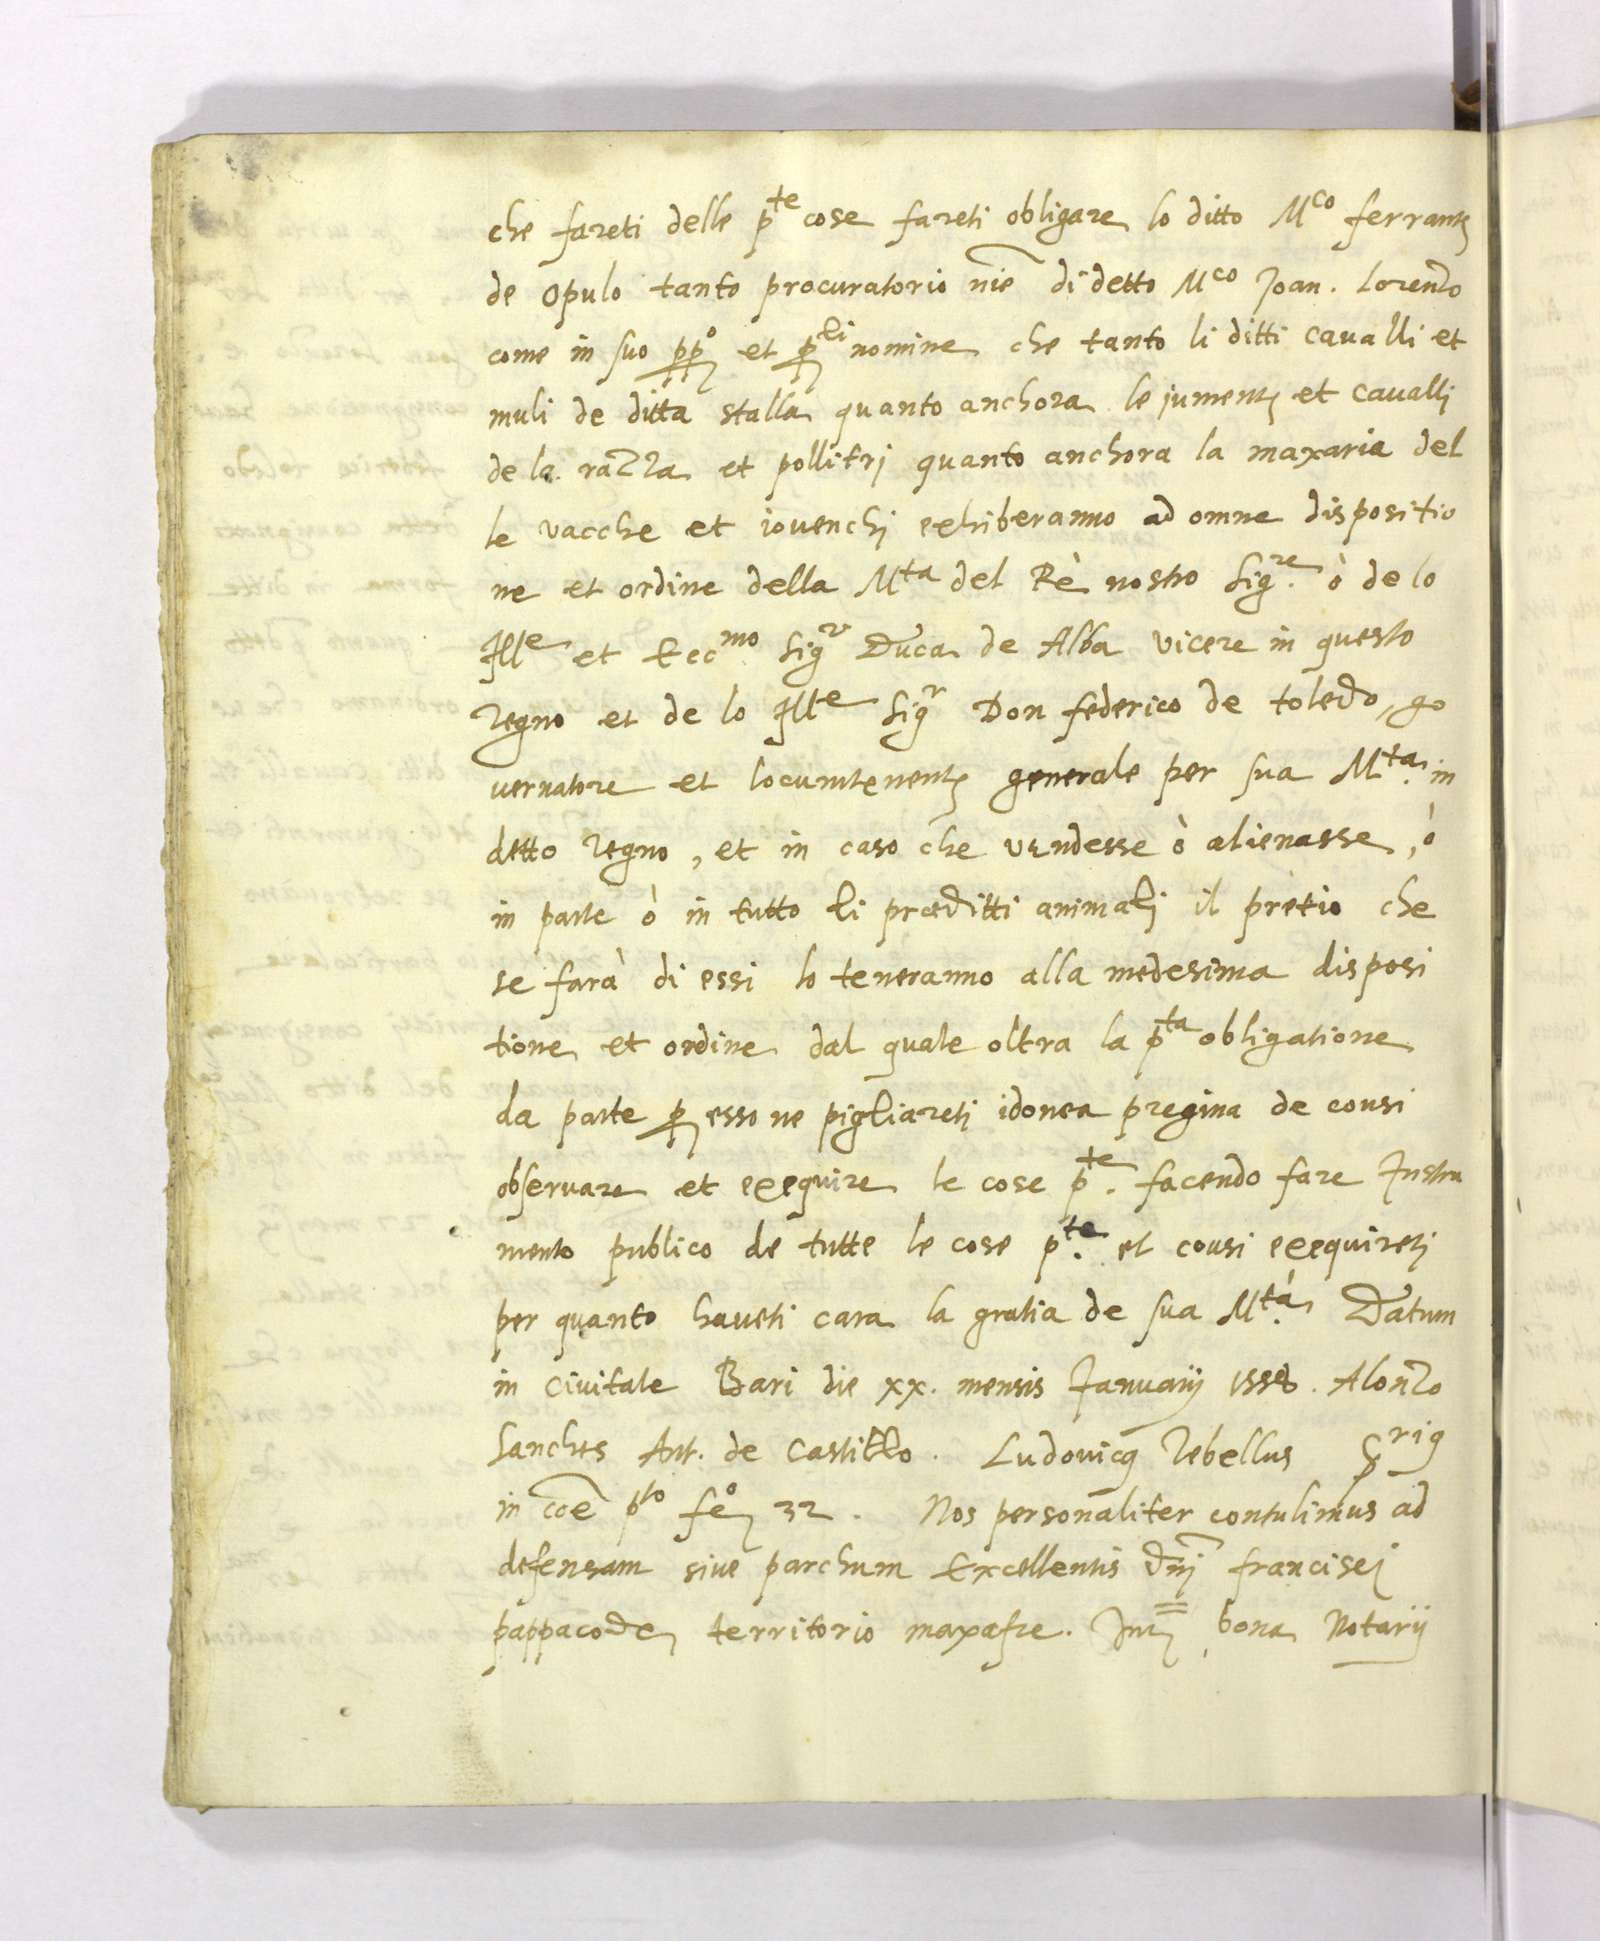 che fareti delle p^te cose fareti obligare lo ditto M^co ferrante
de opulo tanto procuratorio nie di detto M^co Joan. Lorenzo
come in suo pp^o et p^li nomine che tanto li ditti cavalli et
muli de ditta stalla quanto anchora le jumente et cavalli
de la razza et pollitri quanto anchora la maxaria del
le vacche et iovenchi exhiberanno ad omne dispositio
ne et ordine della M^ta del Rè nostro Sig^re. ò de lo
Ill^e et Ecc^mo Sig^r Duca de Alba vicere in questo
regno et de lo Ill^e Sig^r Don federico de toledo, go
vernatore et locumtenente generale per sua M^ta. in
detto regno, et in caso che vendesse ò alienasse, ò
in parte ò in tutto li preditti animali il pretio che
se farà di essi lo teneranno alla medesima disposi
tione et ordine dal quale oltra la p^ta obligatione
da parte p esso ne pigliareti idonea pregiria de cousi
observare et exequire le cose p^te. facendo fare Instru
mento publico de tutte le cose p^te. et cousi exequireti
per quanto haveti cara la gratia de sua M^tà. Datum
in civitate Bari die xx. mensis Januarij 1558. Alonzo
Sanches Ant. de Castillo. Ludovicus rebellus
in coe p^to fe^o 32. Nos personaliter contulimus ad
defensam sive parchum Excellentis dni francisci
pappacode territorio maxafre. bona Notarij